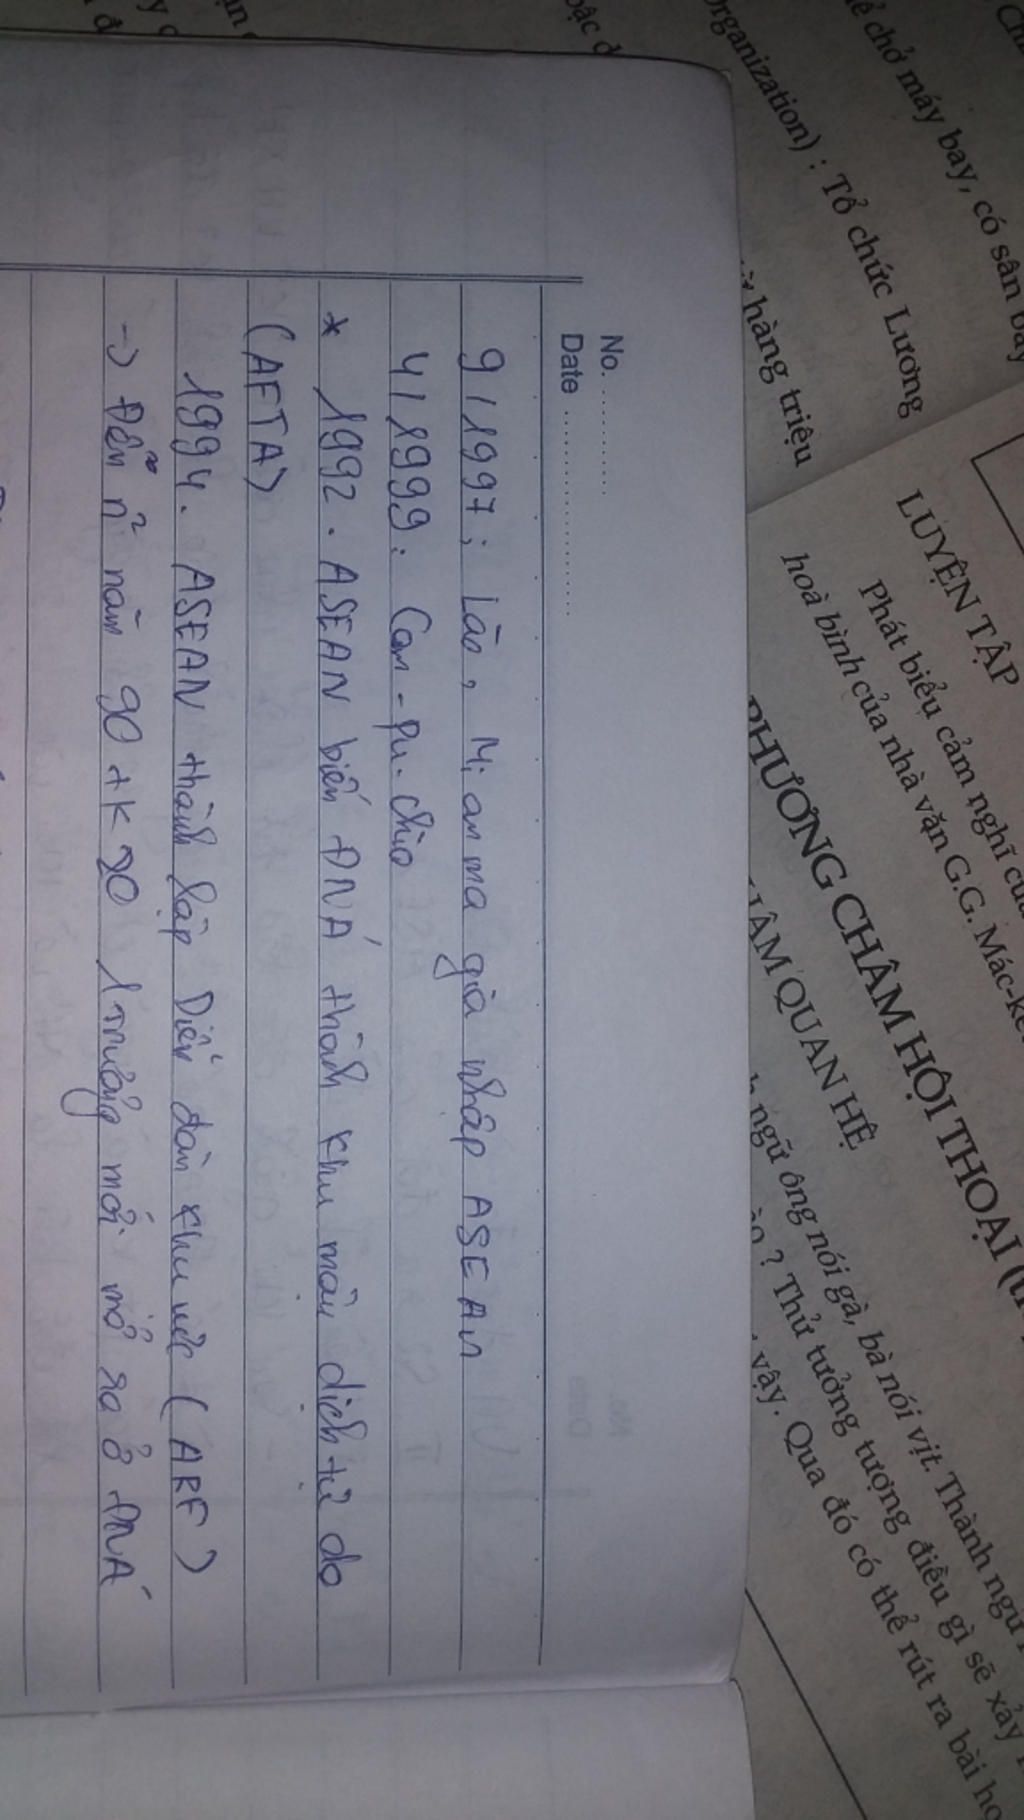 No.
Date
9/1997: Lào, Mi-an-ma gia nhập ASEAN
4/1999: Cam-pu-chia
* 1992. ASEAN biến ĐNÁ thành khu mậu dịch tự do
(AFTA)
1994. ASEAN thành lập Diễn đàn khu vực (ARF)
-> Đến n² năm 90 tk 20 1 trường mới mở ra ở ĐNÁ
ể chở máy bay, có sân bay
Organization) : Tổ chức Lương
hàng triệu
bậc
LUYỆN TẬP
Phát biểu cảm nghĩ của
hoà bình của nhà văn G.G. Mác-két
PHƯƠNG CHÂM HỘI THOẠI
CHÂM QUAN HỆ
ngữ ông nói gà, bà nói vịt. Thành ngữ
? Thử tưởng tượng điều gì sẽ xảy
vậy. Qua đó có thể rút ra bài học